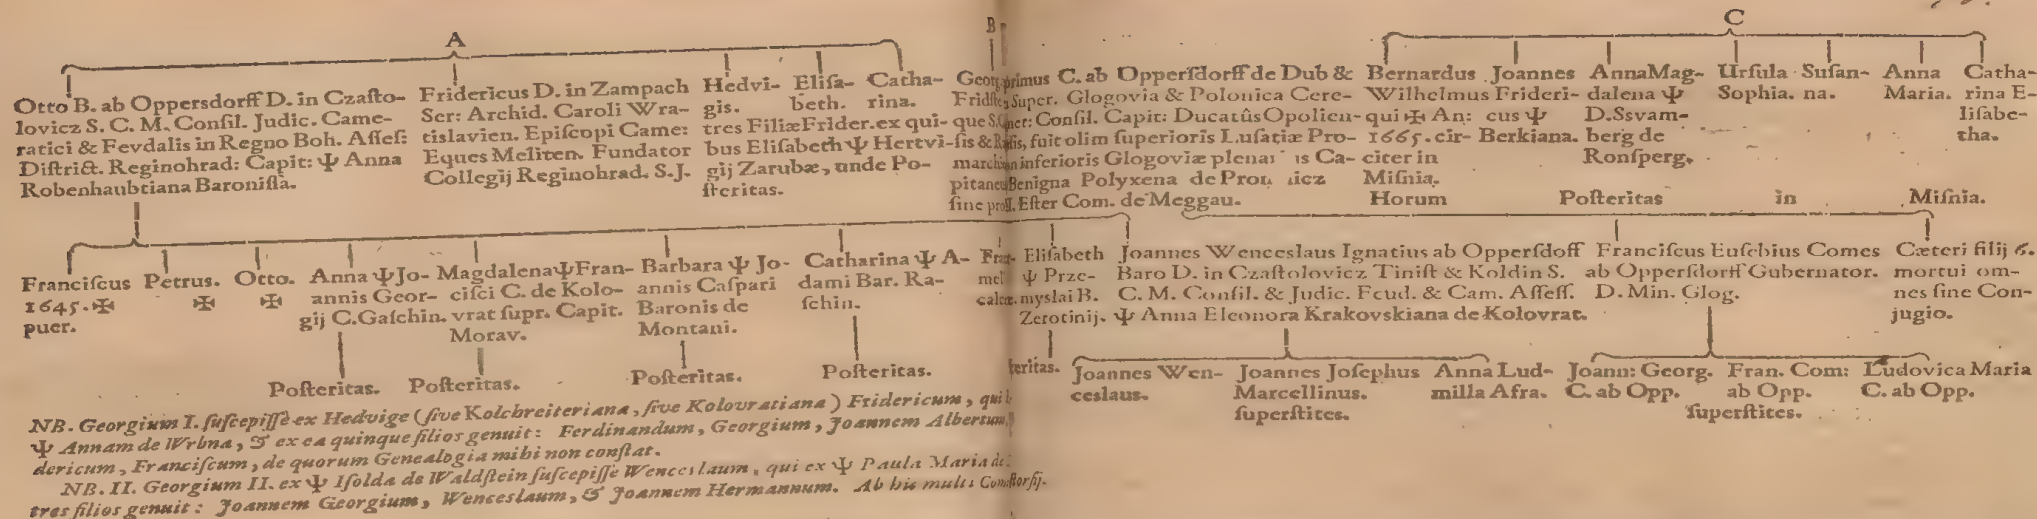 A
B
C
Otto B. ab Oppersdorff D. in Czaſto-
lovicz S. C. M. Conſil. Judic. Came-
ratici & Fevdalis in Regno Boh. Aſſeſ:
Diſtrict. Reginohrad: Capit: Ψ Anna
Robenhaubtiana Baroniſſa.
Fridericus D. in Zampach
Ser: Archid. Caroli Wra-
tislavien. Epiſcopi Came:
Eques Meliten. Fundator
Collegij Reginohrad. S.J.
Hedvi- Eliſa- Catha-
gis. beth. rina.
tres Filiæ Frider. ex qui-
bus Eliſabeth Ψ Hertvi-
gij Zarubæ, unde Po-
ſteritas.
primus C. ab Opperſdorff de Dub &
Super. Glogovia & Polonica Cere-
que Conſil. Capit: Ducatûs Opolien-
ſis & fuit olim ſuperioris Luſatiæ Pro-
march inferioris Glogoviæ Ca-
pitaneus Benigna Polyxena de
ſine Eſter Com. de Meggau.
Bernardus Joannes AnnaMag- Urſula Suſan- Anna Catha-
Wilhelmus Frideri- dalena Ψ Sophia. na. Maria. rina E-
qui ✠ An: cus Ψ D.Ssvam- liſabe-
1665. cir- Berkiana. berg de tha.
citer in Ronſperg.
Miſnia.
Horum Poſteritas in Miſnia.
Franciſcus Petrus. Otto.
1645. ✠ ✠ ✠
puer.
Anna Ψ Jo-
annis Geor-
gij C.Gaſchin.
Magdalena Ψ Fran-
ciſci C. de Kolo-
vrat ſupr. Capit.
Morav.
Barbara Ψ Jo-
annis Caſpari
Baronis de
Montani.
Catharina Ψ A-
dami Bar. Ra-
ſchin.
Eliſabeth
Ψ Prze-
myslai B.
Zerotinij.
Joannes Wenceslaus Ignatius ab Opperſdoff
Baro D. in Czaſtolovicz Tiniſt & Koldin S.
C. M. Conſil. & Judic. Feud. & Cam. Aſſeſſ.
Ψ Anna Eleonora Krakovskiana de Kolovrat.
Franciſcus Euſebius Comes
ab Opperſdorff Gubernator.
D. Min. Glog.
Cæteri filij 6.
mortui om-
nes ſine Con-
jugio.
Poſteritas. Poſteritas. Poſteritas. Poſteritas.
Joannes Wen-
ceslaus.
Joannes Joſephus
Marcellinus.
ſuperſtites.
Anna Lud-
milla Afra.
Joann: Georg. Fran. Com: Ludovica Maria
C. ab Opp. ab Opp. C. ab Opp.
ſuperſtites.
NB. Georgium I. ſuſcepiſſe ex Hedvige (ſive Kolchreiteriana, ſive Kolovratiana) Fridericum,
Ψ Annam de Wrbna, & ex ea quinque filios genuit: Ferdinandum, Georgium, Joannem Albertum,
dericum, Franciſcum, de quorum Genealogia mihi non conſtat.
NB. II. Georgium II. ex Ψ Iſolda de Waldſtein ſuſcepiſſe Wenceslaum, qui ex Ψ Paula Maria
tres filios genuit: Joannem Georgium, Wenceslaum, & Joannem Hermannum. Ab his multi